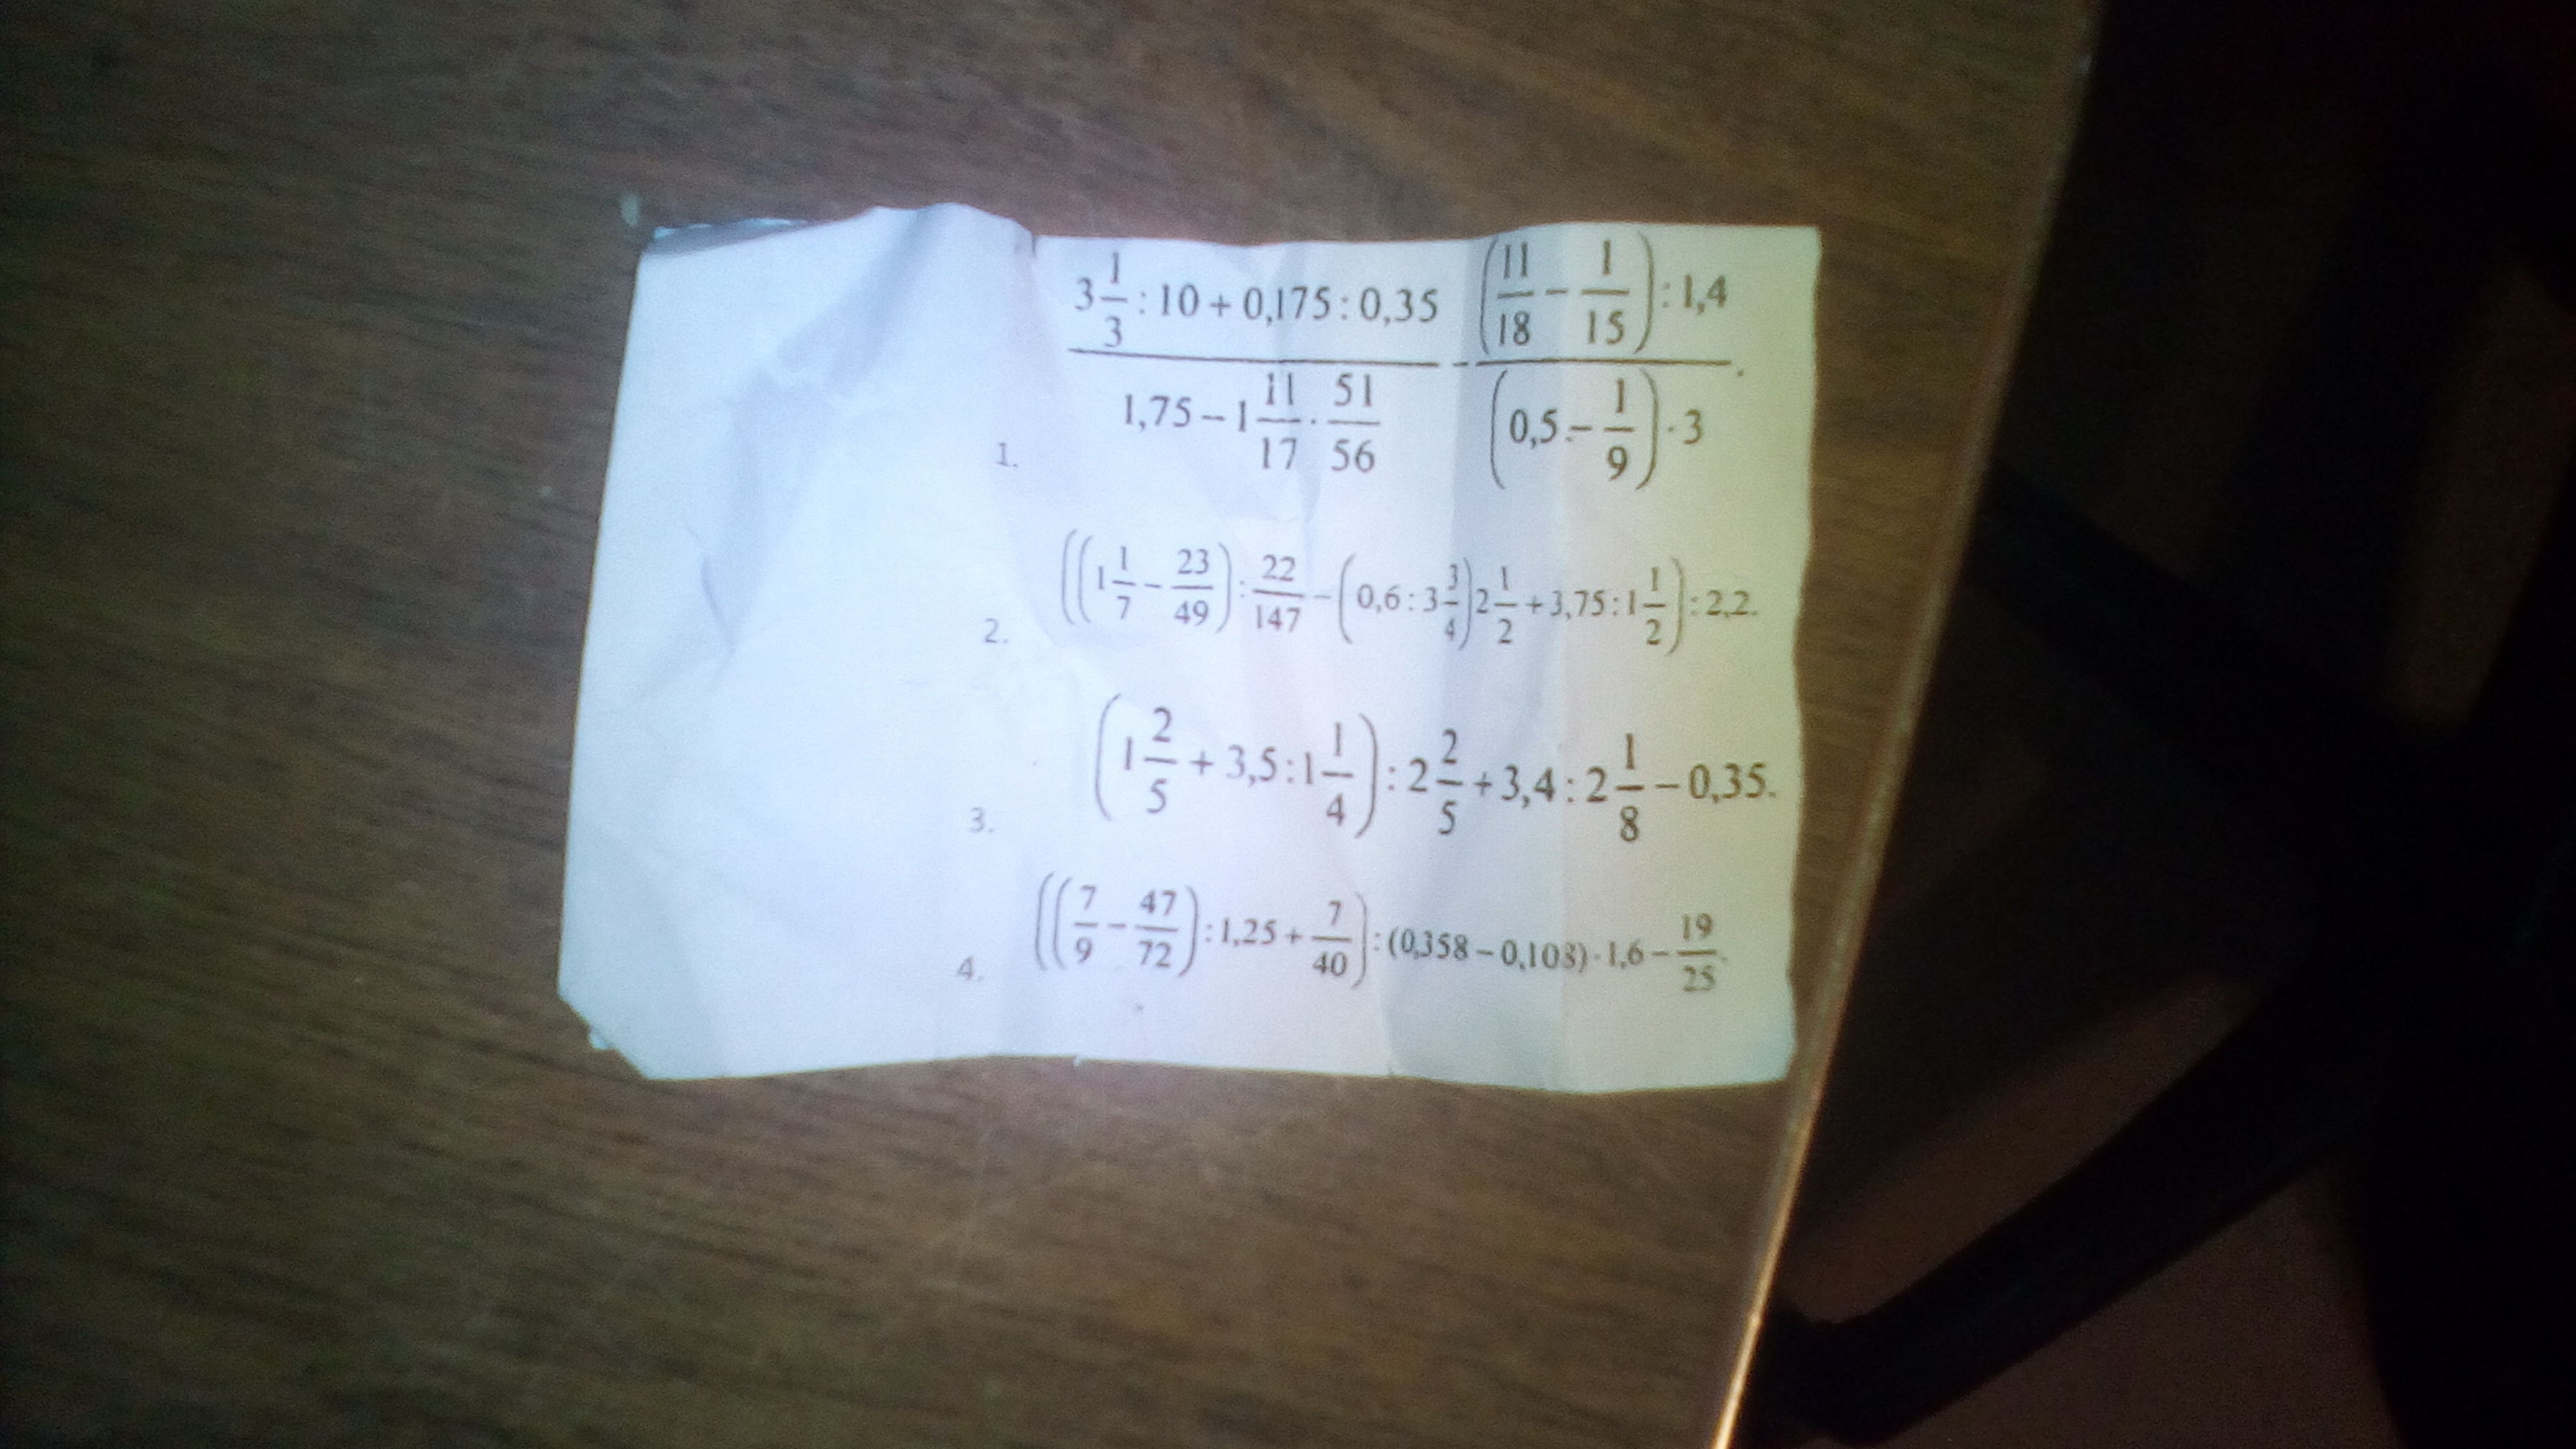 1. (3 1/3 : 10 + 0,175 : 0,35)/(1,75 − 1 11/17 · 51/56) − ((11/18 − 1/15) : 1,4)/((0,5 − 1/9) · 3).
2. ((1 1/7 − 23/49) : 22/147 − (0,6 : 3 3/4) 2 1/2 + 3,75 : 1 1/2) : 2,2.
3. (1 2/5 + 3,5 : 1 1/4) : 2 2/5 + 3,4 : 2 1/8 − 0,35.
4. ((7/9 − 47/72) : 1,25 + 7/40) : (0,358 − 0,108) · 1,6 − 19/25.